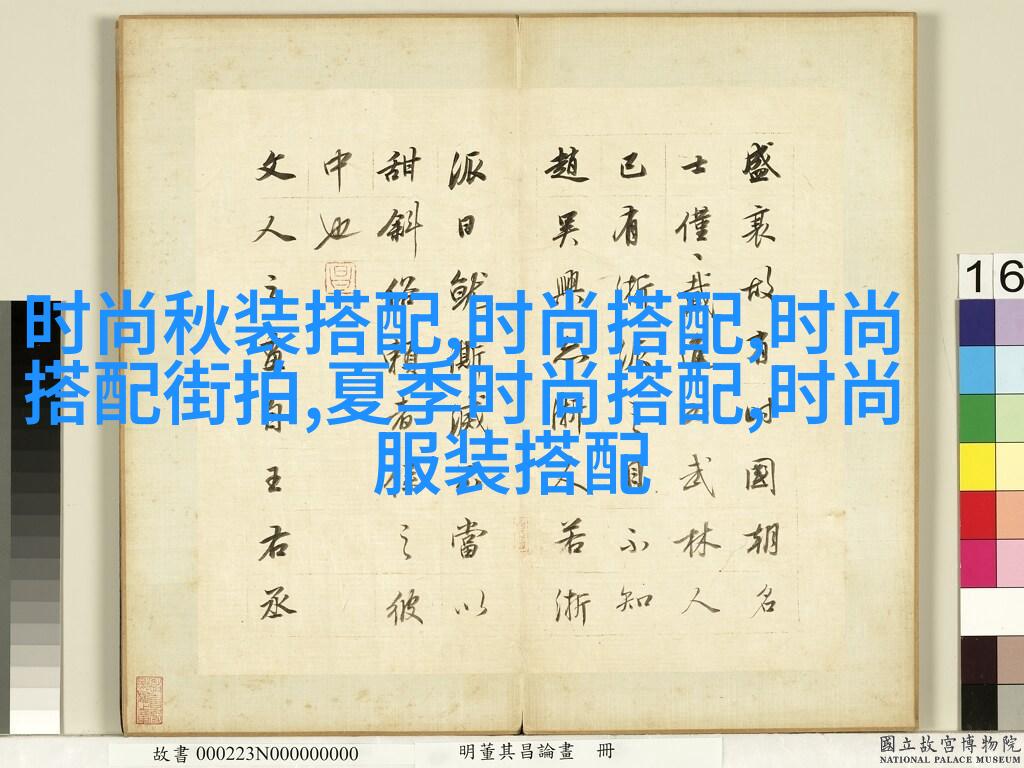 盛衰故有時國朝名
士僅〻戴進為武林人
已有浙派之目不知
趙吳興亦浙人若浙
派日就澌滅不當以
甜斜俗賴者係之彼
中也
文人之畫自王右丞
时尚秋装搭配,时尚搭配,时尚
搭配街拍,夏季时尚搭配,时尚
服装搭配
16
故書 000223N000000000
明董其昌論畫 冊
國立故宮博物院
NATIONAL PALACE MUSEUM